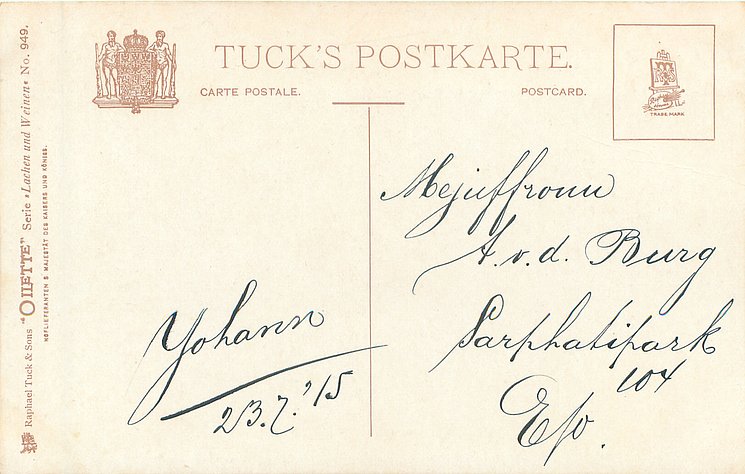 TUCK'S POSTKARTE.
CARTE POSTALE.
POSTCARD.
TRADE MARK
Raphael Tuck & Sons "OILETTE" Serie „Lachen und Weinen“ No. 949.
HOFLIEFERANTEN S. MAJESTÄT DES KAISERS UND KÖNIGS.
Mejuffrouw
A. v. d. Burg
Sarphatipark
104
Yohann
23.7.'15